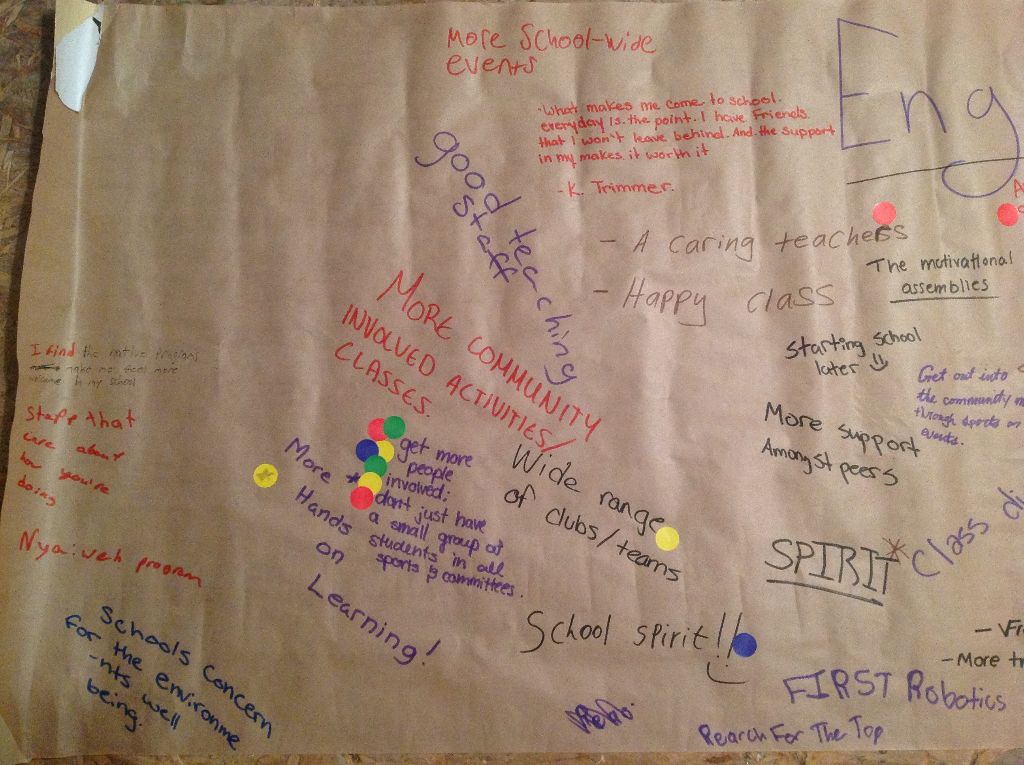 More School-wide
events
Eng
·What makes me come to school.
everyday is the point. I have Friends
that I won't leave behind. And the support
in my makes it worth it
-K. Trimmer.
good teaching
staff
- A caring teachers
- Happy class
The motivational
assemblies
MORE COMMUNITY
INVOLVED ACTIVITIES/
CLASSES.
Starting school
later
Get out into
the community
through sports
events.
I find the native programs
make me feel more
welcome in my school
Staff that
care about
how you're
doing
Nya:weh program
More
Hands
on
Learning!
get more
people
involved;
dont just have
a small group of
students in all
sports & committees.
Wide range
of clubs/teams
More support
Amongst peers
SPIRIT
Class
School spirit!!
Schools concern
for the environme
-nts well
being.
- More
FIRST Robotics
Rearch For The Top